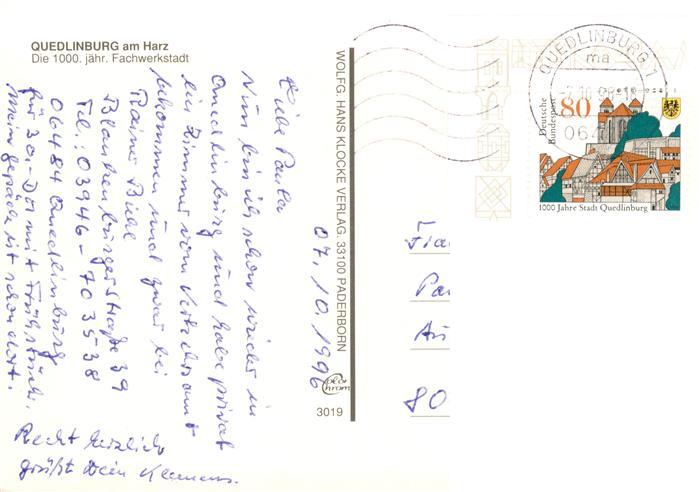 QUEDLINBURG am Harz
Die 1000. jähr. Fachwerkstadt
07.10.1996
Liebe Paula
Nun bin ich schon wieder in
Quedlinburg und habe privat
ein Zimmer vom Verkehrsamt
bekommen und zwar bei
Rainer
Blankenburgerstraße 39
Tel.: 03946-703538
06484 Quedlinburg
für 30,- DM mit Frühstück.
Mein gepäck ist schon dort.
Recht herzlich
grüßt Dein Klemens.
WOLFG. HANS KLOCKE VERLAG. 33100 PADERBORN
color
chrom
3019
QUEDLINBURG 1
ma
Deutsche
Bundespost
80
1000 Jahre Stadt Quedlinburg
80